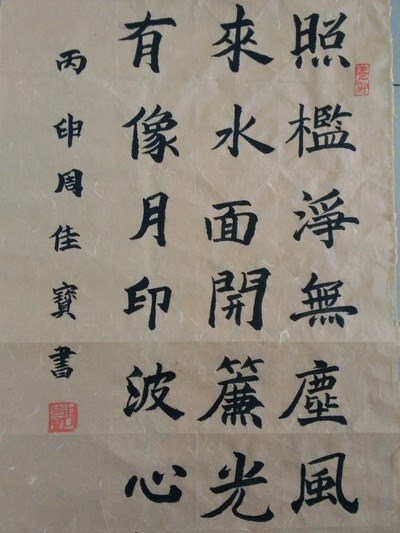 照檻淨無塵風
來水面開簾光
有像月印波心
丙申周佳寶書